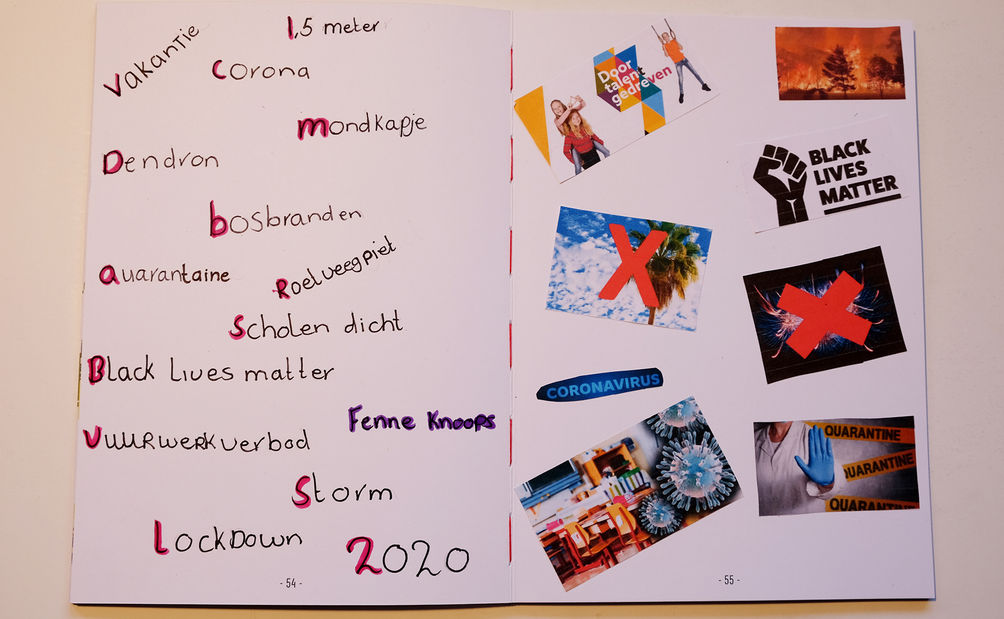 Vakantie
1,5 meter
Corona
mondkapje
Dendron
bosbranden
quarantaine
Roelveegpiet
Scholen dicht
Black Lives matter
Fenne Knoops
Vuurwerkverbod
Storm
Lockdown
2020
- 54 -
Door
talent
gedreven
BLACK
LIVES
MATTER
X
CORONAVIRUS
QUARANTINE
QUARANTINE
QUARANTINE
- 55 -